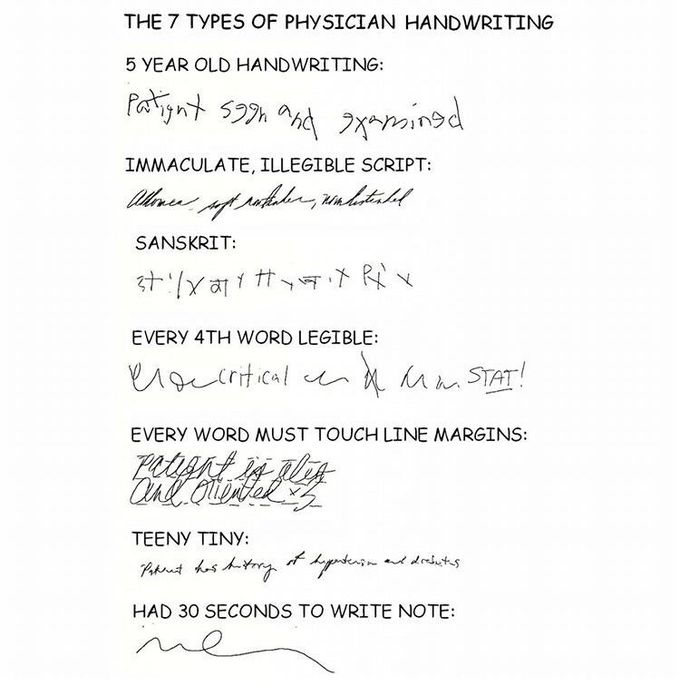 THE 7 TYPES OF PHYSICIAN HANDWRITING
5 YEAR OLD HANDWRITING:
Patient seen and examined
IMMACULATE, ILLEGIBLE SCRIPT:
soft
SANSKRIT:
EVERY 4TH WORD LEGIBLE:
critical STAT!
EVERY WORD MUST TOUCH LINE MARGINS:
Patient is alert
and oriented x3
TEENY TINY:
Patient has history of hypertension and diabetes
HAD 30 SECONDS TO WRITE NOTE: